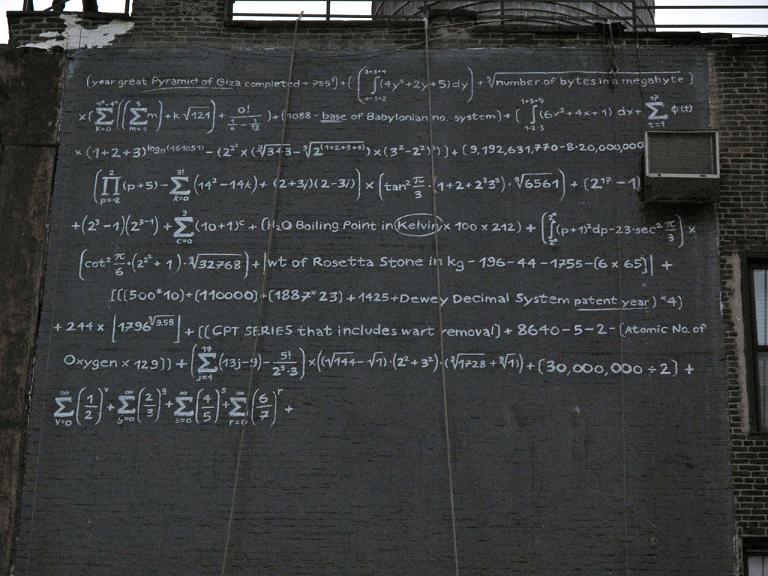 (year great Pyramid of Giza completed + 755³) + ( [ ∫ (4y³+2y+5)dy ] + √number of bytes in a megabyte )
×( Σ k=0 ( ( Σ m=1 m ) + k√121 ) + 0! ) + (1088 - base of Babylonian no. system) + ( ∫ 1·2·3 (6x²+4x+1) dx + Σ t=1 17 φ(t)
× (1+2+3) - (2 × ( ) × (3²-2²) ) ] + (9,192,631,770-8·20,000,000
( Π p=-2 2 (p+5) - Σ k=0 3! (14²-14k) + (2+3i)(2-3i) ) × (tan² π/3 · (1+2+2³3³) · √6561) + (2¹⁷-1)
+(2³-1)(2³⁻¹) + Σ c=0 3 (10+1)ᶜ + (H₂O Boiling Point in Kelvin × 100 × 212) + ( ∫ (p+1)²dp-23·sec² π/3 ) ×
( cot² π/6 · (2 + 1) · ∛32768 ) + |wt of Rosetta Stone in kg - 196-44-1755-(6 × 65)| +
[((500*10)+(110000)+(1887*23) + 1425+Dewey Decimal System patent year) *4]
+ 244 × ⌊1796 ⌋ + [(CPT SERIES that includes wart removal) + 8640-5-2-(Atomic No. of
Oxygen × 129)] + ( Σ j=1 17 (13j-9) - 5!/2·3 ) × ((√144 - √1)·(2²+3²)·(∛1728 + ∛1)) + (30,000,000 ÷ 2) +
Σ v=0 ∞ (1/2)ᵛ + Σ g=0 ∞ (2/3)ᵍ + Σ s=0 ∞ (4/5)ˢ + Σ r=0 ∞ (6/7)ʳ +